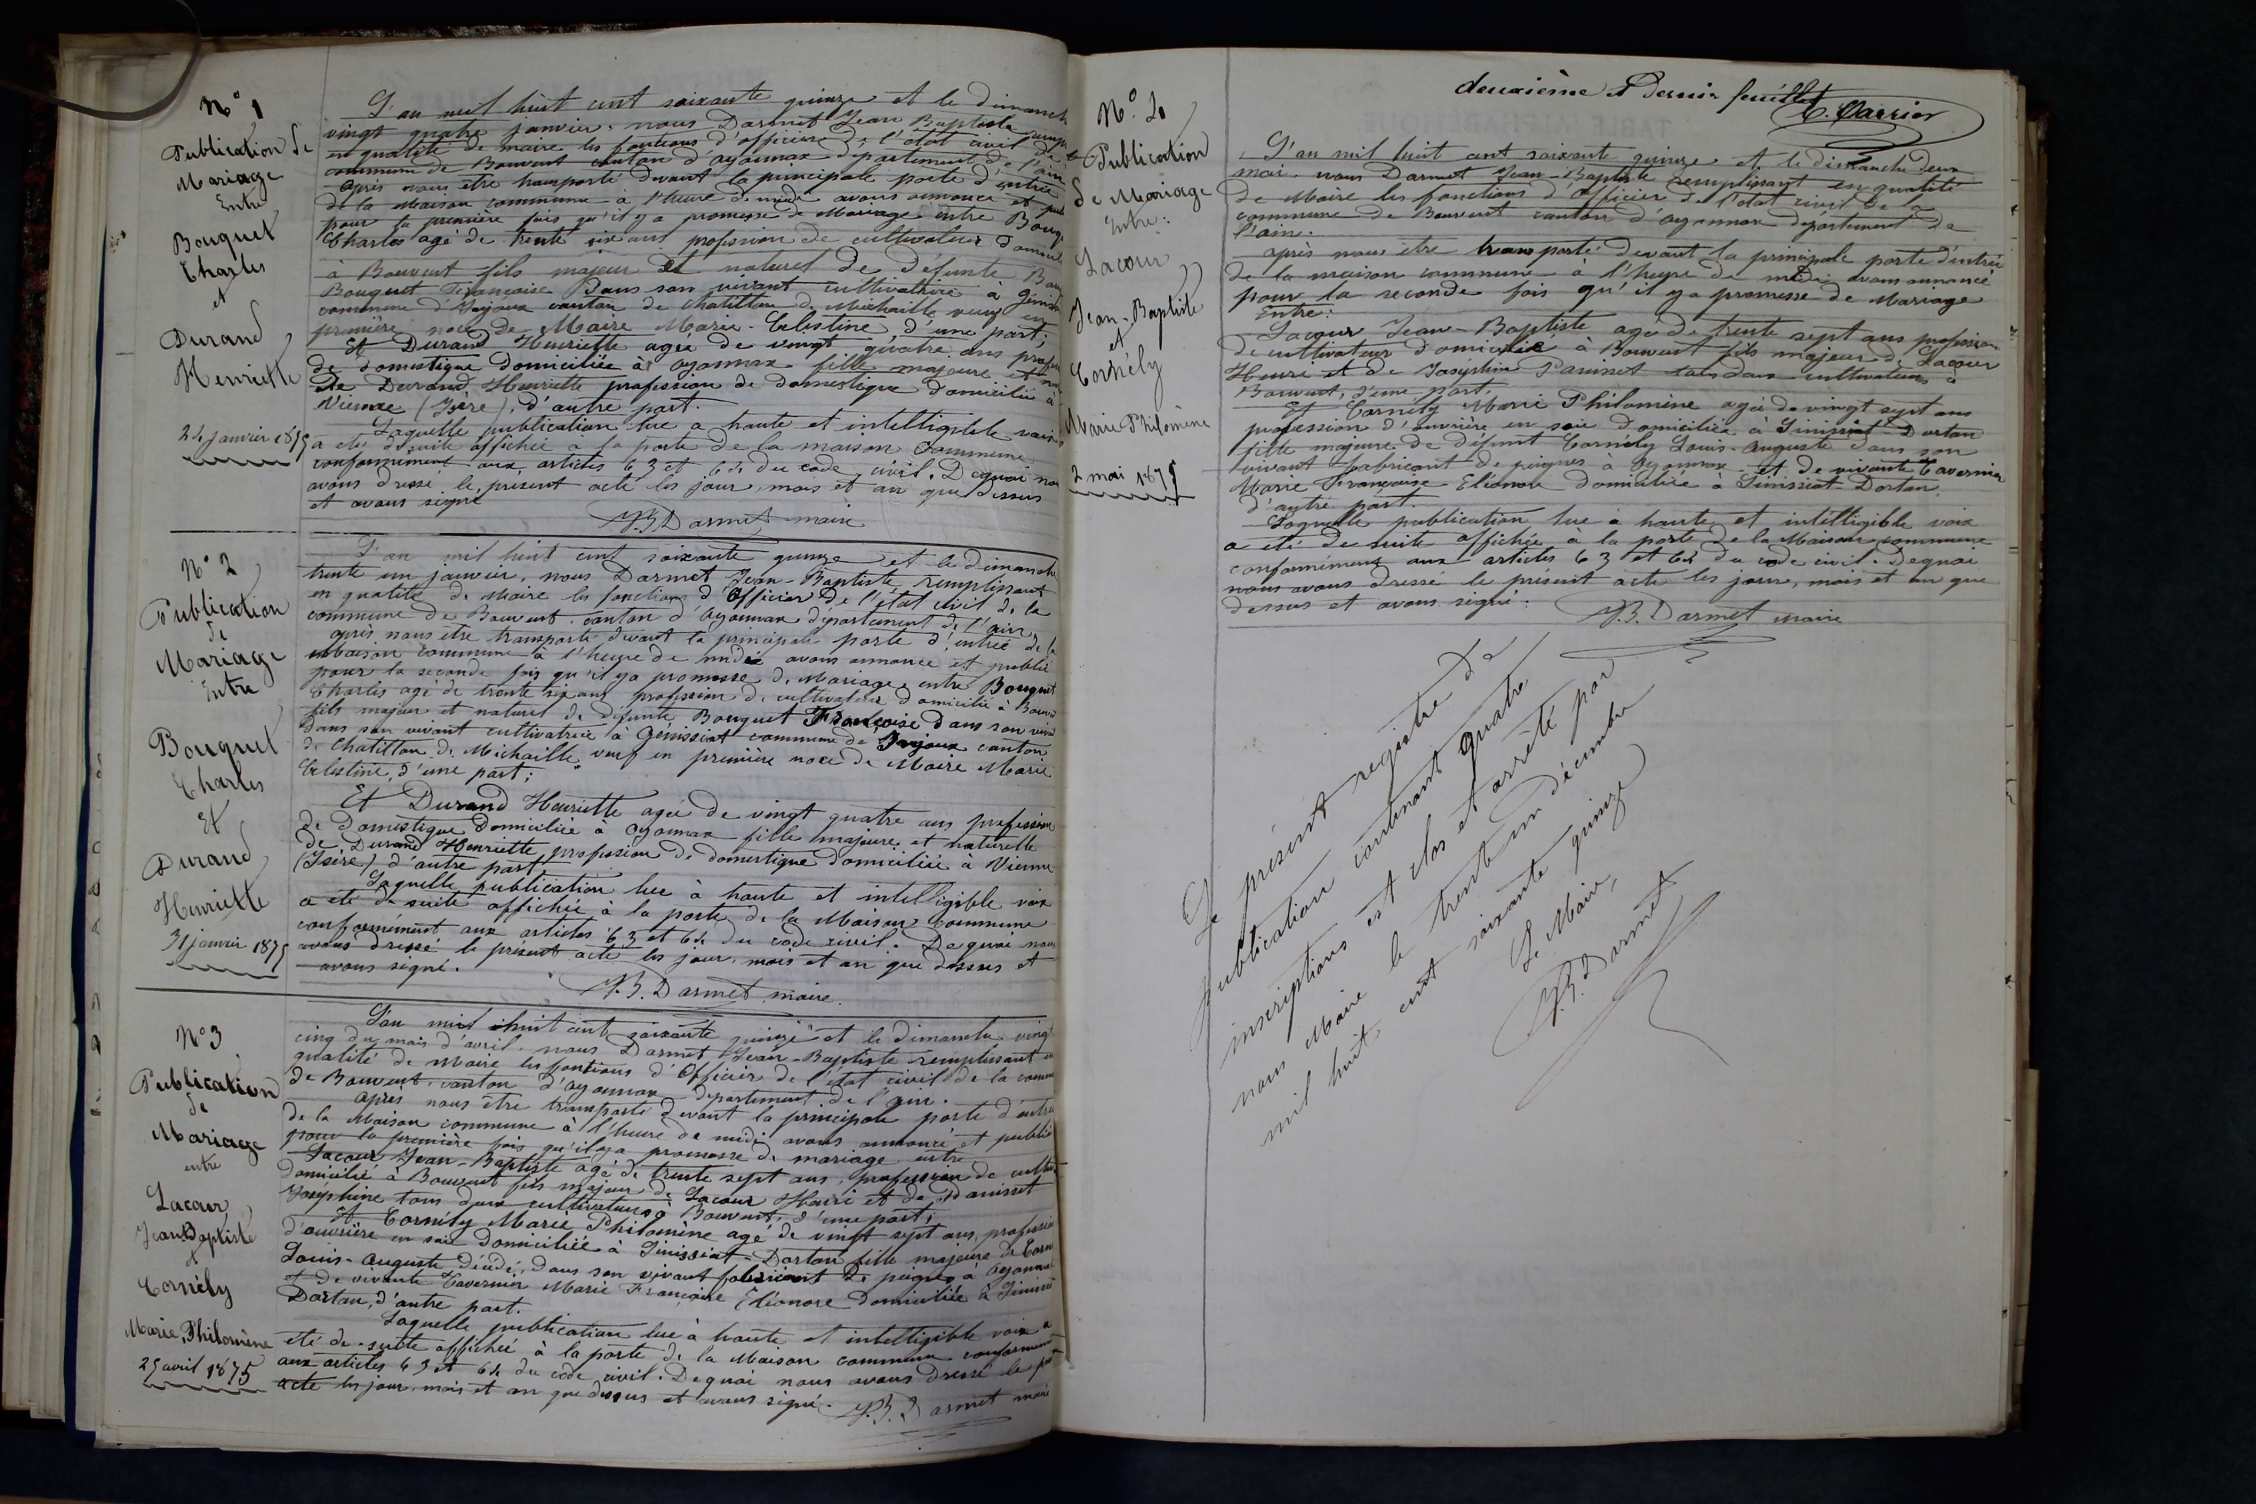 N° 1
Publication de
Mariage
Entre
Bouquet
Charles
et
Durand
Henriette
24 janvier 1875
L'an mil huit cent soixante quinze et le dimanche
vingt quatre janvier, nous Darmet Jean Baptiste
en qualité de maire les fonctions d'officier de l'état civil de
commune de Bouvent canton d'oyonnax département de l'ain
après nous être transporté devant la principale porte d'entrée
de la Maison commune à l'heure de midi avons annoncé et
pour la première fois qu'il y a promesse de Mariage entre
Charles agé de trente six ans profession de cultivateur
à Bouvent fils majeur et naturel de défunte
Bouquet Françoise Dans son vivant cultivatrice à
commune d'Injoux canton de Chatillon de Michaille veuf en
première noce de Maire Marie-Célestine d'une part;
Et Durand Henriette agée de vingt quatre ans
de domestique domiciliée à oyonnax fille majeure et
de Durand Henriette profession de domestique domiciliée à
Vienne (Isère), d'autre part.
Laquelle publication lue a haute et intelligible voix
a été de suite affichée à la porte de la maison Commune
conformément aux articles 63 et 64 du code civil. Dequoi nous
avons dressé le présent acte les jour, mois et an que dessus
et avons signé
J.B. Darmet maire
N° 2
Publication
de
Mariage
Entre
Bouquet
Charles
Et
Durand
Henriette
31 janvier 1875
L'an mil huit cent soixante quinze et le dimanche
trente un janvier, nous Darmet Jean-Baptiste remplissant
en qualité de Maire les fonctions d'Officier de l'état civil de la
commune de Bouvent canton d'Oyonnax département de l'ain,
après nous être transporté devant la principale porte d'entrée de la
Maison commune à l'heure de midi avons annoncé et publié
pour la seconde fois qu'il y a promesse de Mariage entre Bouquet
Charles agé de trente six ans profession de cultivateur domicilié à
fils majeur et naturel de défunte Bouquet Françoise dans son
Dans son vivant cultivatrice à Génissiat commune de Injoux canton
de Chatillon de Michaille veuf en première noce de Maire Marie
Célestine, d'une part;
Et Durand Henriette agée de vingt quatre ans profession
de domestique domiciliée à oyonnax fille majeure et naturelle
de Durand Henriette profession de domestique domiciliée à Vienne
(Isère) d'autre part
Laquelle publication lue à haute et intelligible voix
a été de suite affichée à la porte de la Maison Commune
conformément aux articles 63 et 64 du code civil. De quoi nous
avons dressé le présent acte les jour, mois et an que dessus et
avons signé.
J.B. Darmet maire.
N° 3
Publication
de
Mariage
entre
Lacour
Jean Baptiste
et
Cornély
Marie Philomène
25 avril 1875
L'an mil huit cent soixante quinze et le dimanche vingt
cinq du mois d'avril, nous Darmet Jean-Baptiste remplissant en
qualité de Maire les fonctions d'Officier de l'état civil de la
de Bouvent canton d'oyonnax département de l'ain.
après nous être transporté devant la principale porte d'entrée
de la Maison commune à l'heure de midi avons annoncé et publié
pour la première fois qu'il y a promesse de mariage entre
Lacour Jean-Baptiste agé de trente sept ans, profession de
domicilié à Bouvent fils majeur de Lacour Henri et de Panisset
Joséphine tous deux cultivateurs à Bouvent, d'une part;
Et Cornély Marie Philomène agé de vingt sept ans, profession
d'ouvrière en soie domiciliée à Sinissiat-Dortan fille majeure de
Louis-Auguste décédé, dans son vivant fabricant de peignes à Oyonnax
et de vivante Tavernier Marie Françoise Eléonore domiciliée à
Dortan, d'autre part.
Laquelle publication lue à haute et intelligible voix a
été de suite affichée à la porte de la Maison commune conformément
aux articles 63 et 64 du code civil. Dequoi nous avons dressé le
acte les jour, mois et an que dessus et avons signé.
J.B. Darmet maire
deuxième et Dernier feuillet
N° 4
Publication
de Mariage
Entre:
Lacour
Jean-Baptiste
et
Cornély
Marie Philomène
2 mai 1875
L'an mil huit cent soixante quinze et le dimanche deux
mai, nous Darmet Jean-Baptiste remplissant en qualité
de Maire les fonctions d'Officier de l'état civil de la
commune de Bouvent canton d'oyonnax département de
l'ain.
après nous être transporté devant la principale porte d'entrée
de la maison commune à l'heure de midi avons annoncé
pour la seconde fois qu'il y a promesse de Mariage
Entre:
Lacour Jean-Baptiste agé de trente sept ans profession
de cultivateur domicilié à Bouvent fils majeur de Lacour
Henri et de Joséphine Panisset tous deux cultivateurs à
Bouvent, d'une part.
Et Cornély Marie Philomène agée de vingt sept ans
profession d'ouvrière en soie domiciliée à Sinissiat-Dortan
fille majeure de défunt Cornély Louis-Auguste dans son
vivant fabricant de peignes à Oyonnax et de vivante Tavernier
Marie Françoise Eléonore domiciliée à Sinissiat Dortan
d'autre part.
Laquelle publication lue à haute et intelligible voix
a été de suite affichée à la porte de la Maison commune
conformément aux articles 63 et 64 du code civil. Dequoi
nous avons dressé le présent acte les jour, mois et an que
dessus et avons signé.
J.B. Darmet maire
Le présent registre de
publication contenant quatre
inscriptions est clos et arrêté par
nous Maire le trente un décembre
mil huit cent soixante quinze
Le Maire,
J.B. Darmet